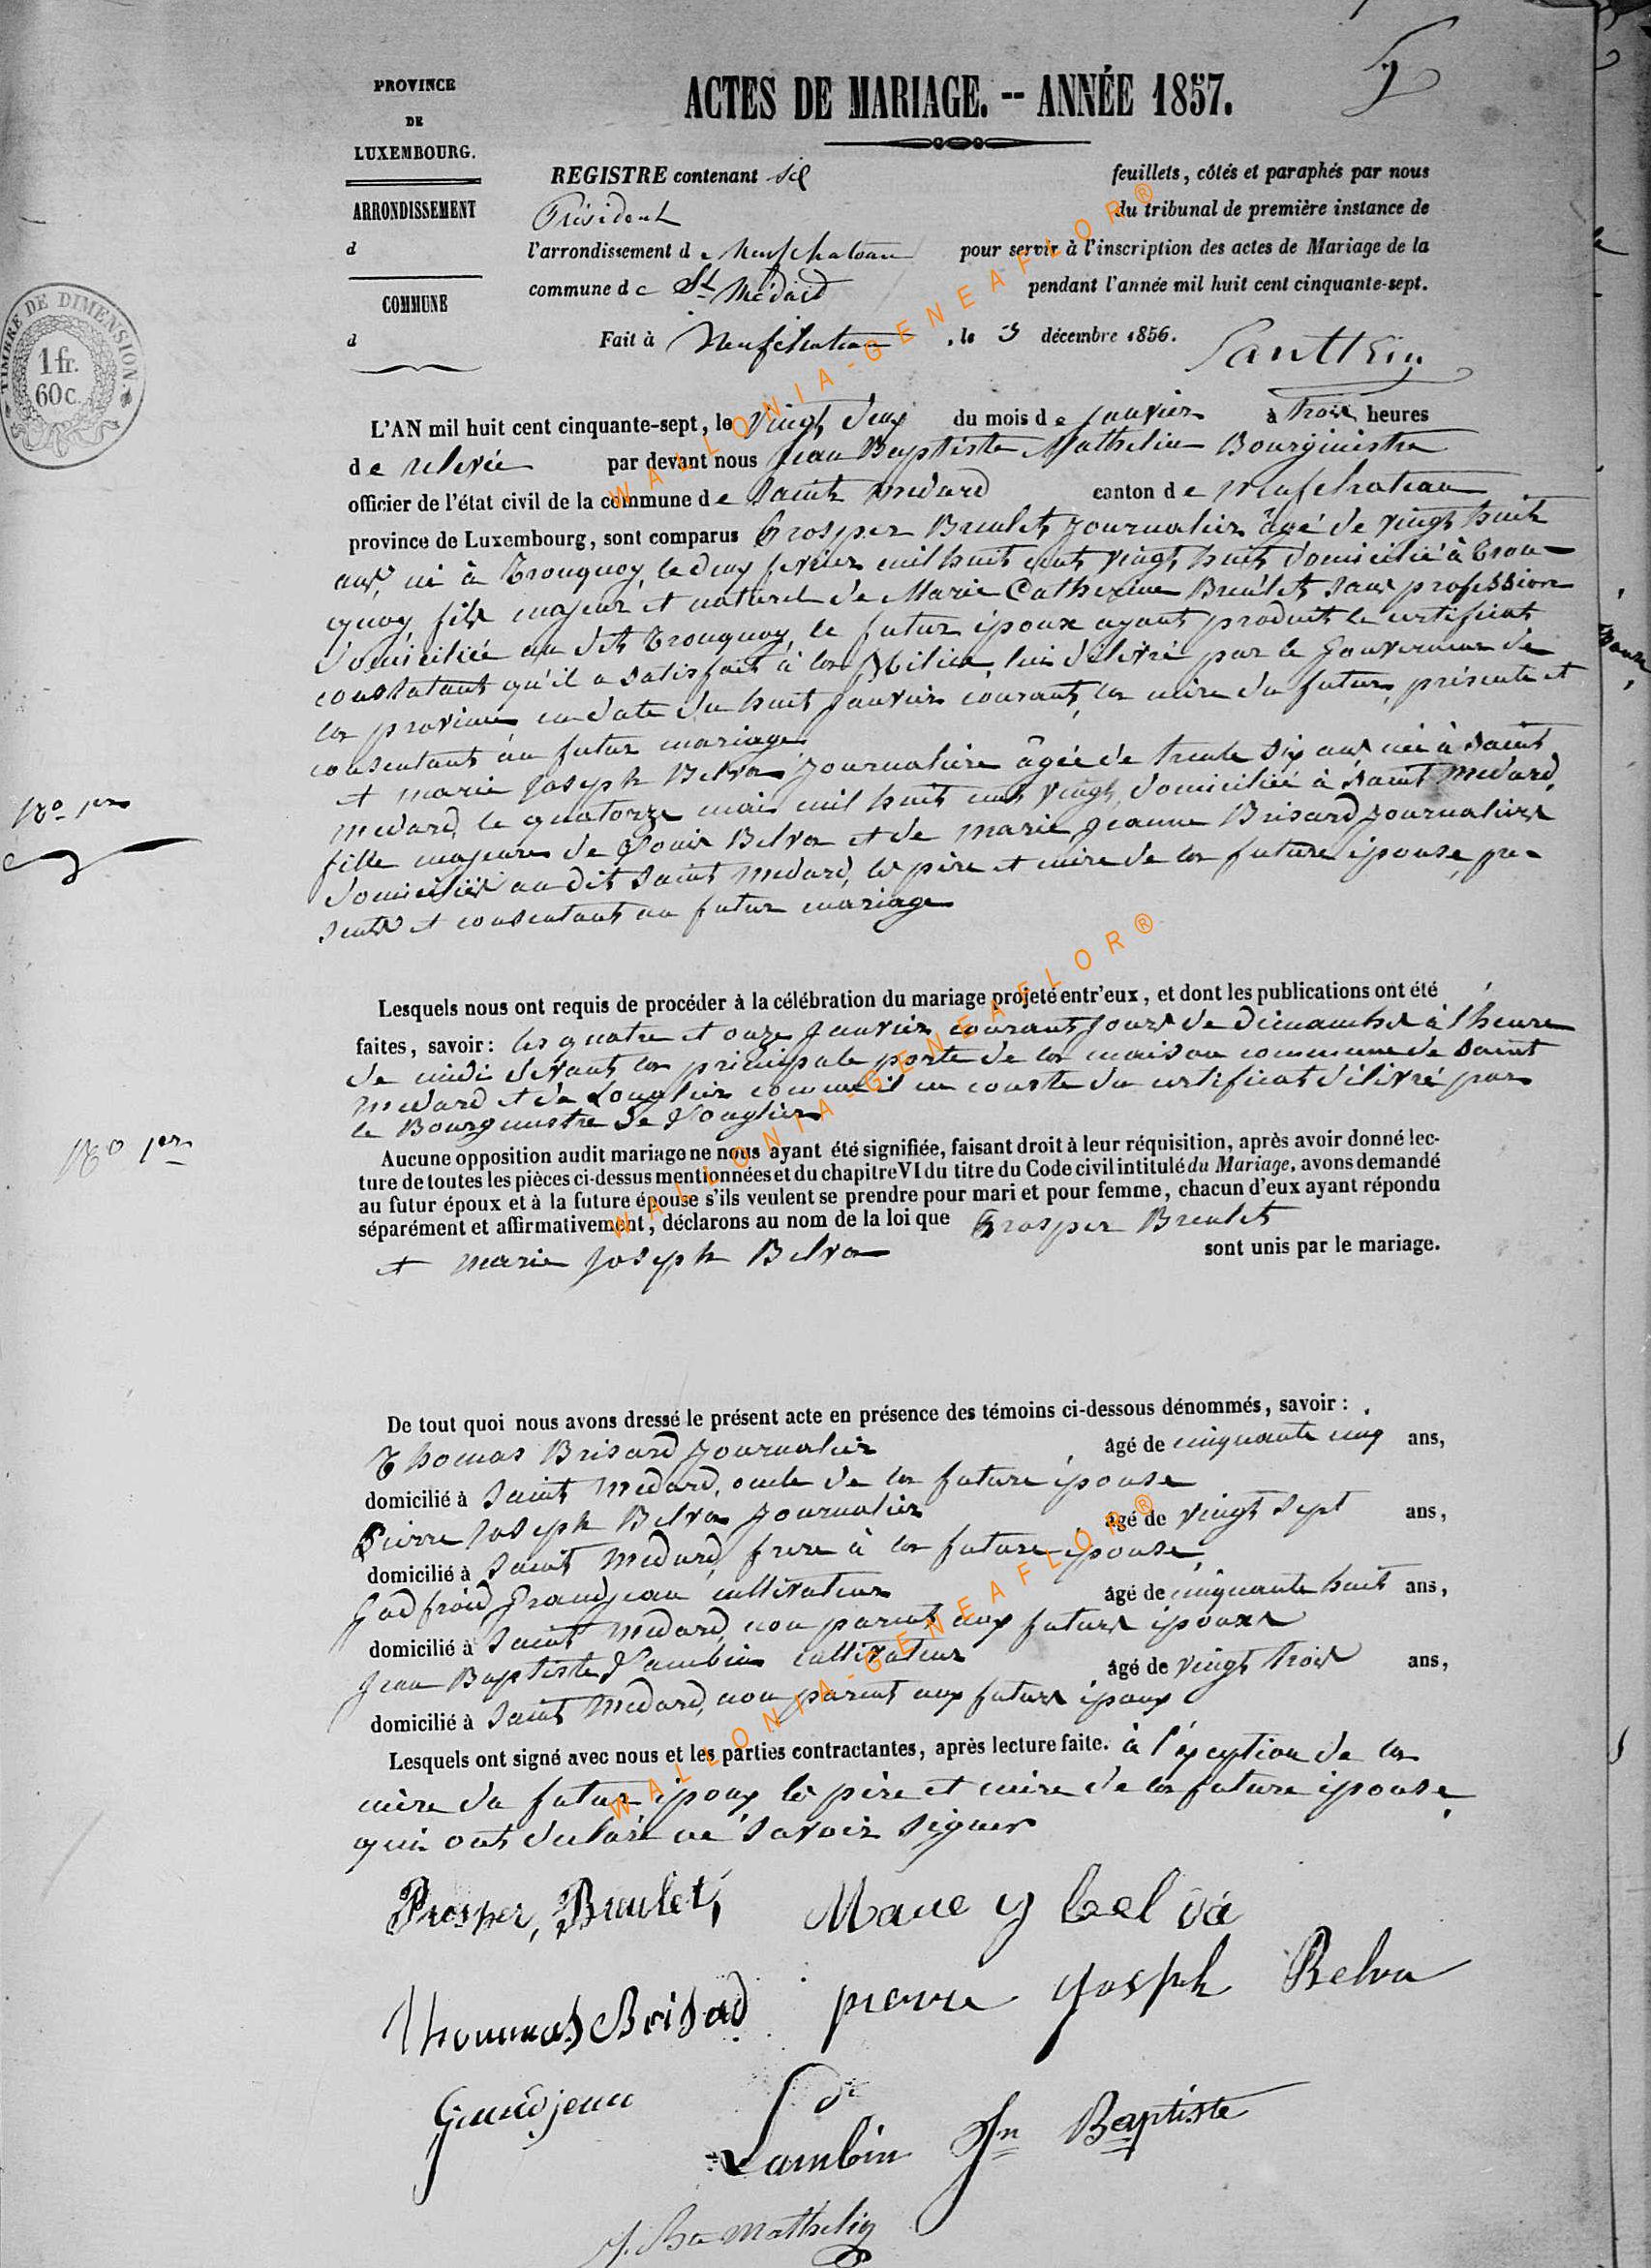 PROVINCE
DE
LUXEMBOURG.
ARRONDISSEMENT
d
COMMUNE
d
TIMBRE DE DIMENSION.
1 fr.
60 c.
ACTES DE MARIAGE. -- ANNÉE 1857.
REGISTRE contenant six feuillets, côtés et paraphés par nous
Président du tribunal de première instance de
l'arrondissement de Neufchateau pour servir à l'inscription des actes de Mariage de la
commune de St Médard pendant l'année mil huit cent cinquante-sept.
Fait à Neufchateau, le 3 décembre 1856.
L'AN mil huit cent cinquante-sept, le vingt deux du mois de janvier à trois heures
de relevée par devant nous Jean Baptiste Mathelin Bourgmestre
officier de l'état civil de la commune de Saint Medard canton de Neufchateau
province de Luxembourg, sont comparus Prosper Breulet, journalier âgé de vingt huit
ans, né à Tronquoy, le deux fevrier mil huit cent vingt huit domicilié à Tron-
quoy fils majeur et naturel de Marie Catherine Breulet sans profession
domiciliée au dit Tronquoy, le futur époux ayant produit le certificat
constatant qu'il a satisfait à la Milice, lui délivré par le Gouverneur de
la province en date du huit janvier courant, la mère du futur, présente et
consentant au futur mariage
et marie Joseph Belva journalière âgée de trente six ans née à Saint
Medard, le quatorze mai mil huit cent vingt, domiciliée à Saint Medard,
fille majeure de Louis Belva et de Marie Jeanne Brisard journaliers
domiciliés au dit Saint Medard, les père et mère de la future épouse, pré-
sents et consentants au futur mariage
No 1er
Lesquels nous ont requis de procéder à la célébration du mariage projeté entr'eux, et dont les publications ont été
faites, savoir: les quatre et onze janvier courant jours de dimanches à l'heure
de midi devant la principale porte de la maison commune de Saint
Medard et de Longlier comme il en conste du certificat délivré par
le Bourgmestre de Longlier
No 1er
Aucune opposition audit mariage ne nous ayant été signifiée, faisant droit à leur réquisition, après avoir donné lec-
ture de toutes les pièces ci-dessus mentionnées et du chapitre VI du titre du Code civil intitulé du Mariage, avons demandé
au futur époux et à la future épouse s'ils veulent se prendre pour mari et pour femme, chacun d'eux ayant répondu
séparément et affirmativement, déclarons au nom de la loi que Prosper Breulet
et marie Joseph Belva sont unis par le mariage.
De tout quoi nous avons dressé le présent acte en présence des témoins ci-dessous dénommés, savoir :
Thomas Brisard journalier âgé de cinquante cinq ans,
domicilié à Saint Medard, oncle de la future épouse
Pierre Joseph Belva journalier âgé de vingt sept ans,
domicilié à Saint Medard, frere à la future épouse,
Godfroid Grandjean cultivateur âgé de cinquante huit ans,
domicilié à Saint Medard, non parent aux futurs époux
Jean Baptiste Lambin cultivateur âgé de vingt trois ans,
domicilié à Saint Medard, non parent aux futurs époux
Lesquels ont signé avec nous et les parties contractantes, après lecture faite. à l'exception de la
mère du futur époux les père et mère de la future épouse,
qui ont déclaré ne savoir signer
Prosper, Breulet, Marie J belva
Thommas Brisad pierre Joseph Belva
Grandjean
Lambin Jn Baptiste
J. Bte Mathelin
WALLONIA-GENEAFLOR®
WALLONIA-GENEAFLOR®
WALLONIA-GENEAFLOR®